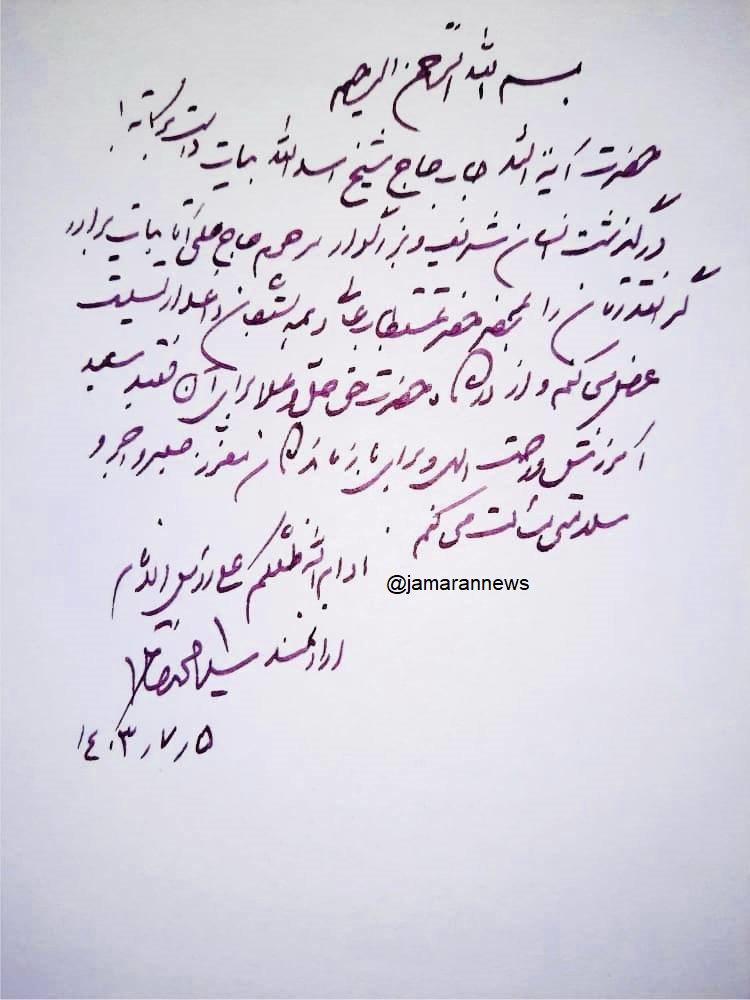 بسم الله الرحمن الرحیم
حضرت آیة الله جناب حاج شیخ اسدالله بیات دامت برکاته
درگذشت انسان شریف و بزرگوار مرحوم حاج علی آقا بیات برادر
گرانقدرتان را بمحضر حضرت مستطابعالی و همه بستگان و اعزاء تسلیت
عرض می کنم و از درگاه حضرت حق جلّ و علا برای آن فقید سعید
آمرزش و رحمت الهی و برای بازماندگان معزز صبر و اجر و
سلامتی مسألت می کنم.
ادام الله ظلّکم علی رؤس الانام
@jamarannews
ارادتمند سید محمد خاتمی
۱۴۰۳ر۷ر۵